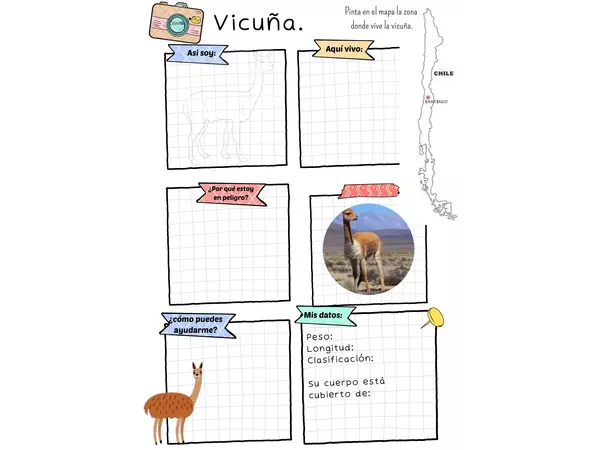 Vicuña.
Pinta en el mapa la zona
donde vive la vicuña.
Así soy:
Aquí vivo:
CHILE
SANTIAGO
¿Por qué estoy
en peligro?
¿cómo puedes
ayudarme?
Mis datos:
Peso:
Longitud:
Clasificación:
Su cuerpo está
cubierto de: